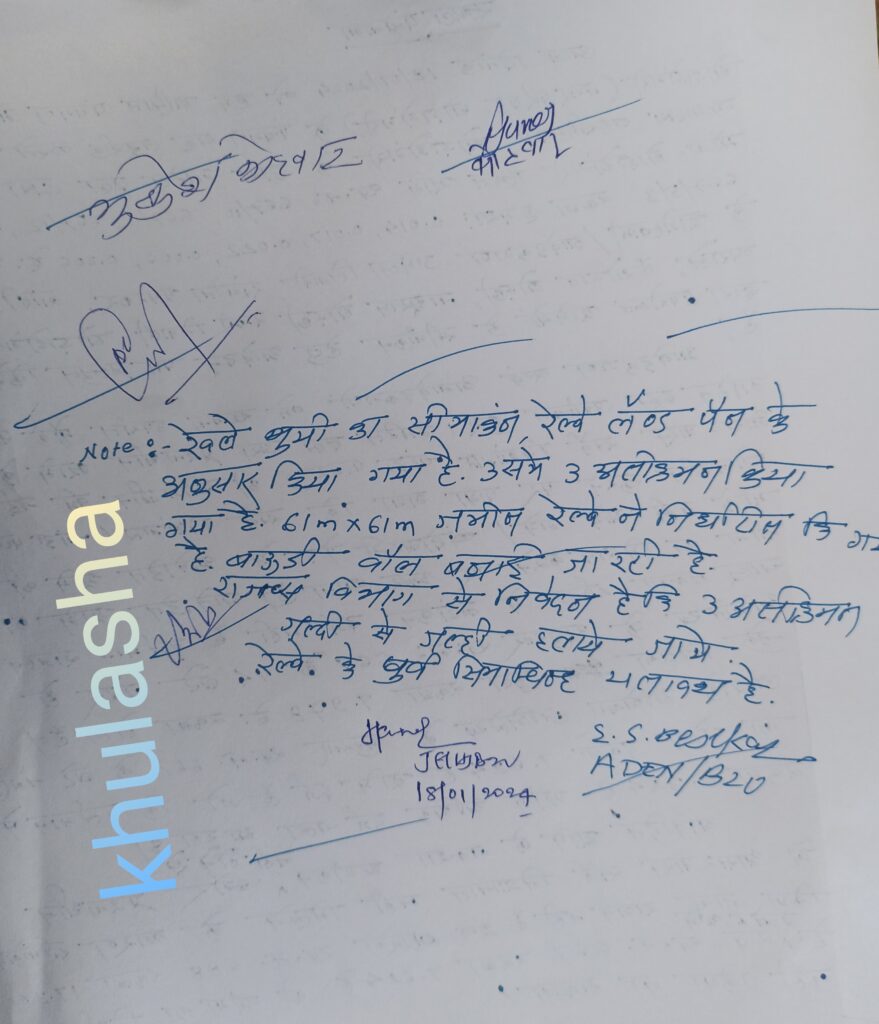 मुकेश कोटवार
कोटवार
Note :- रेल्वे भुमी का सीमाकंन, रेल्वे लॅण्ड प्लॅन के
अनुसार किया गया है. उसमे 3 अतीक्रमन किया
गया है. 61m x 61m जमीन रेल्वे ने निर्धारित कि
है. बाऊंड्री वॉल बनाई जा रही है.
राजस्व विभाग से निवेदन है कि 3 अतीक्रमन
जल्दी से जल्दी हटाये जाये.
रेल्वे के पुर्व
है.
18/01/2024
ADEN/BZU
khulasha